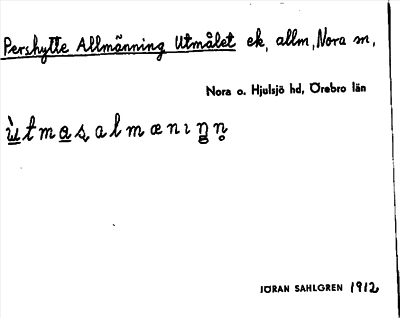 Pershytte Allmänning Utmålet ek, allm, Nora sn,
Nora o. Hjulsjö hd, Örebro län
JÖRAN SAHLGREN 1912